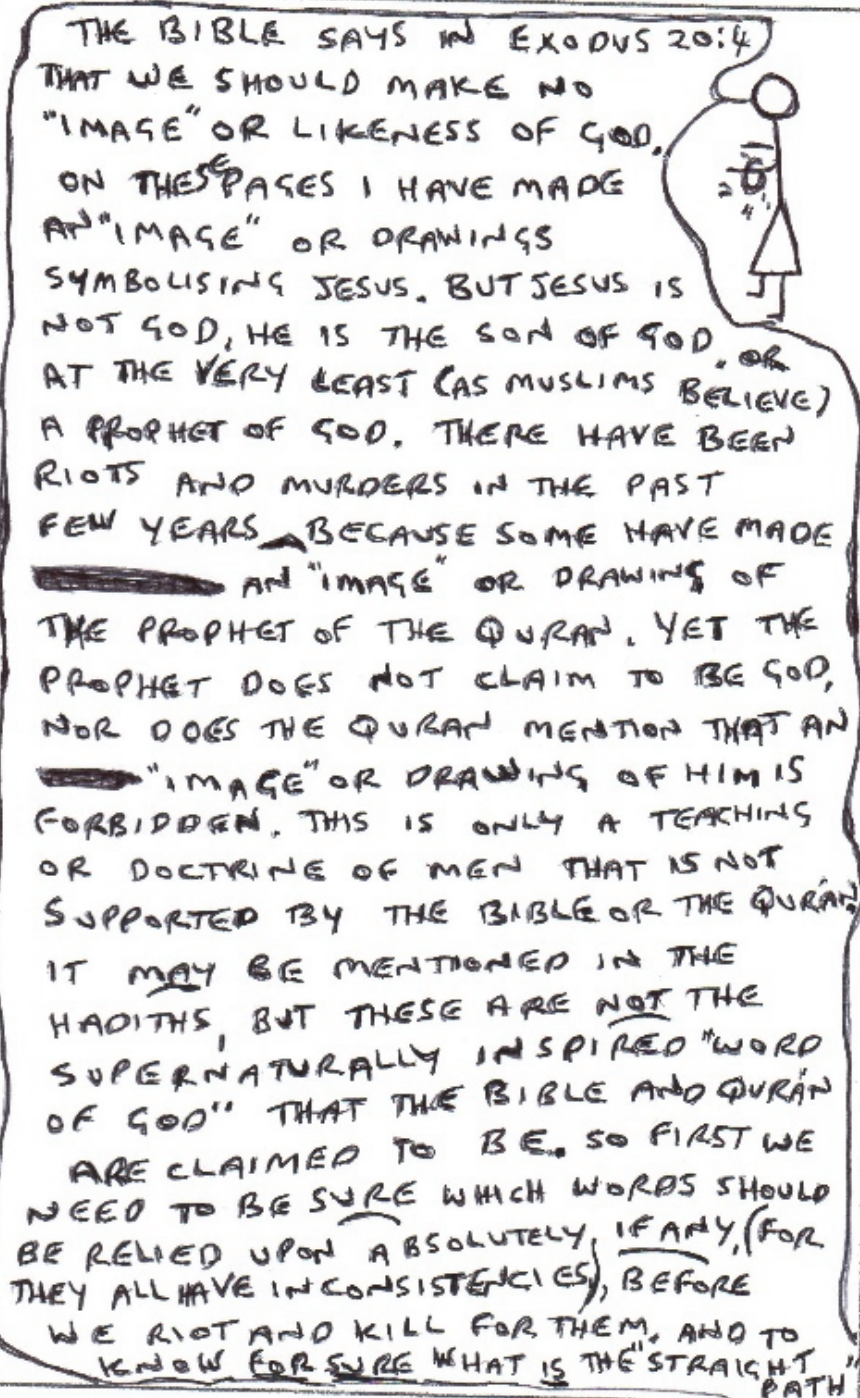 THE BIBLE SAYS IN EXODUS 20:4
THAT WE SHOULD MAKE NO
"IMAGE" OR LIKENESS OF GOD.
ON THESE PAGES I HAVE MADE
AN "IMAGE" OR DRAWINGS
SYMBOLISING JESUS. BUT JESUS IS
NOT GOD, HE IS THE SON OF GOD. OR
AT THE VERY LEAST (AS MUSLIMS BELIEVE)
A PROPHET OF GOD. THERE HAVE BEEN
RIOTS AND MURDERS IN THE PAST
FEW YEARS BECAUSE SOME HAVE MADE
AN "IMAGE" OR DRAWING OF
THE PROPHET OF THE QURAN. YET THE
PROPHET DOES NOT CLAIM TO BE GOD,
NOR DOES THE QURAN MENTION THAT AN
"IMAGE" OR DRAWING OF HIM IS
FORBIDDEN. THIS IS ONLY A TEACHING
OR DOCTRINE OF MEN THAT IS NOT
SUPPORTED BY THE BIBLE OR THE QURÁN
IT MAY BE MENTIONED IN THE
HADITHS, BUT THESE ARE NOT THE
SUPERNATURALLY INSPIRED "WORD
OF GOD" THAT THE BIBLE AND QURÁN
ARE CLAIMED TO BE. SO FIRST WE
NEED TO BE SURE WHICH WORDS SHOULD
BE RELIED UPON ABSOLUTELY, IF ANY, (FOR
THEY ALL HAVE INCONSISTENCIES), BEFORE
WE RIOT AND KILL FOR THEM. AND TO
KNOW FOR SURE WHAT IS THE "STRAIGHT
PATH"